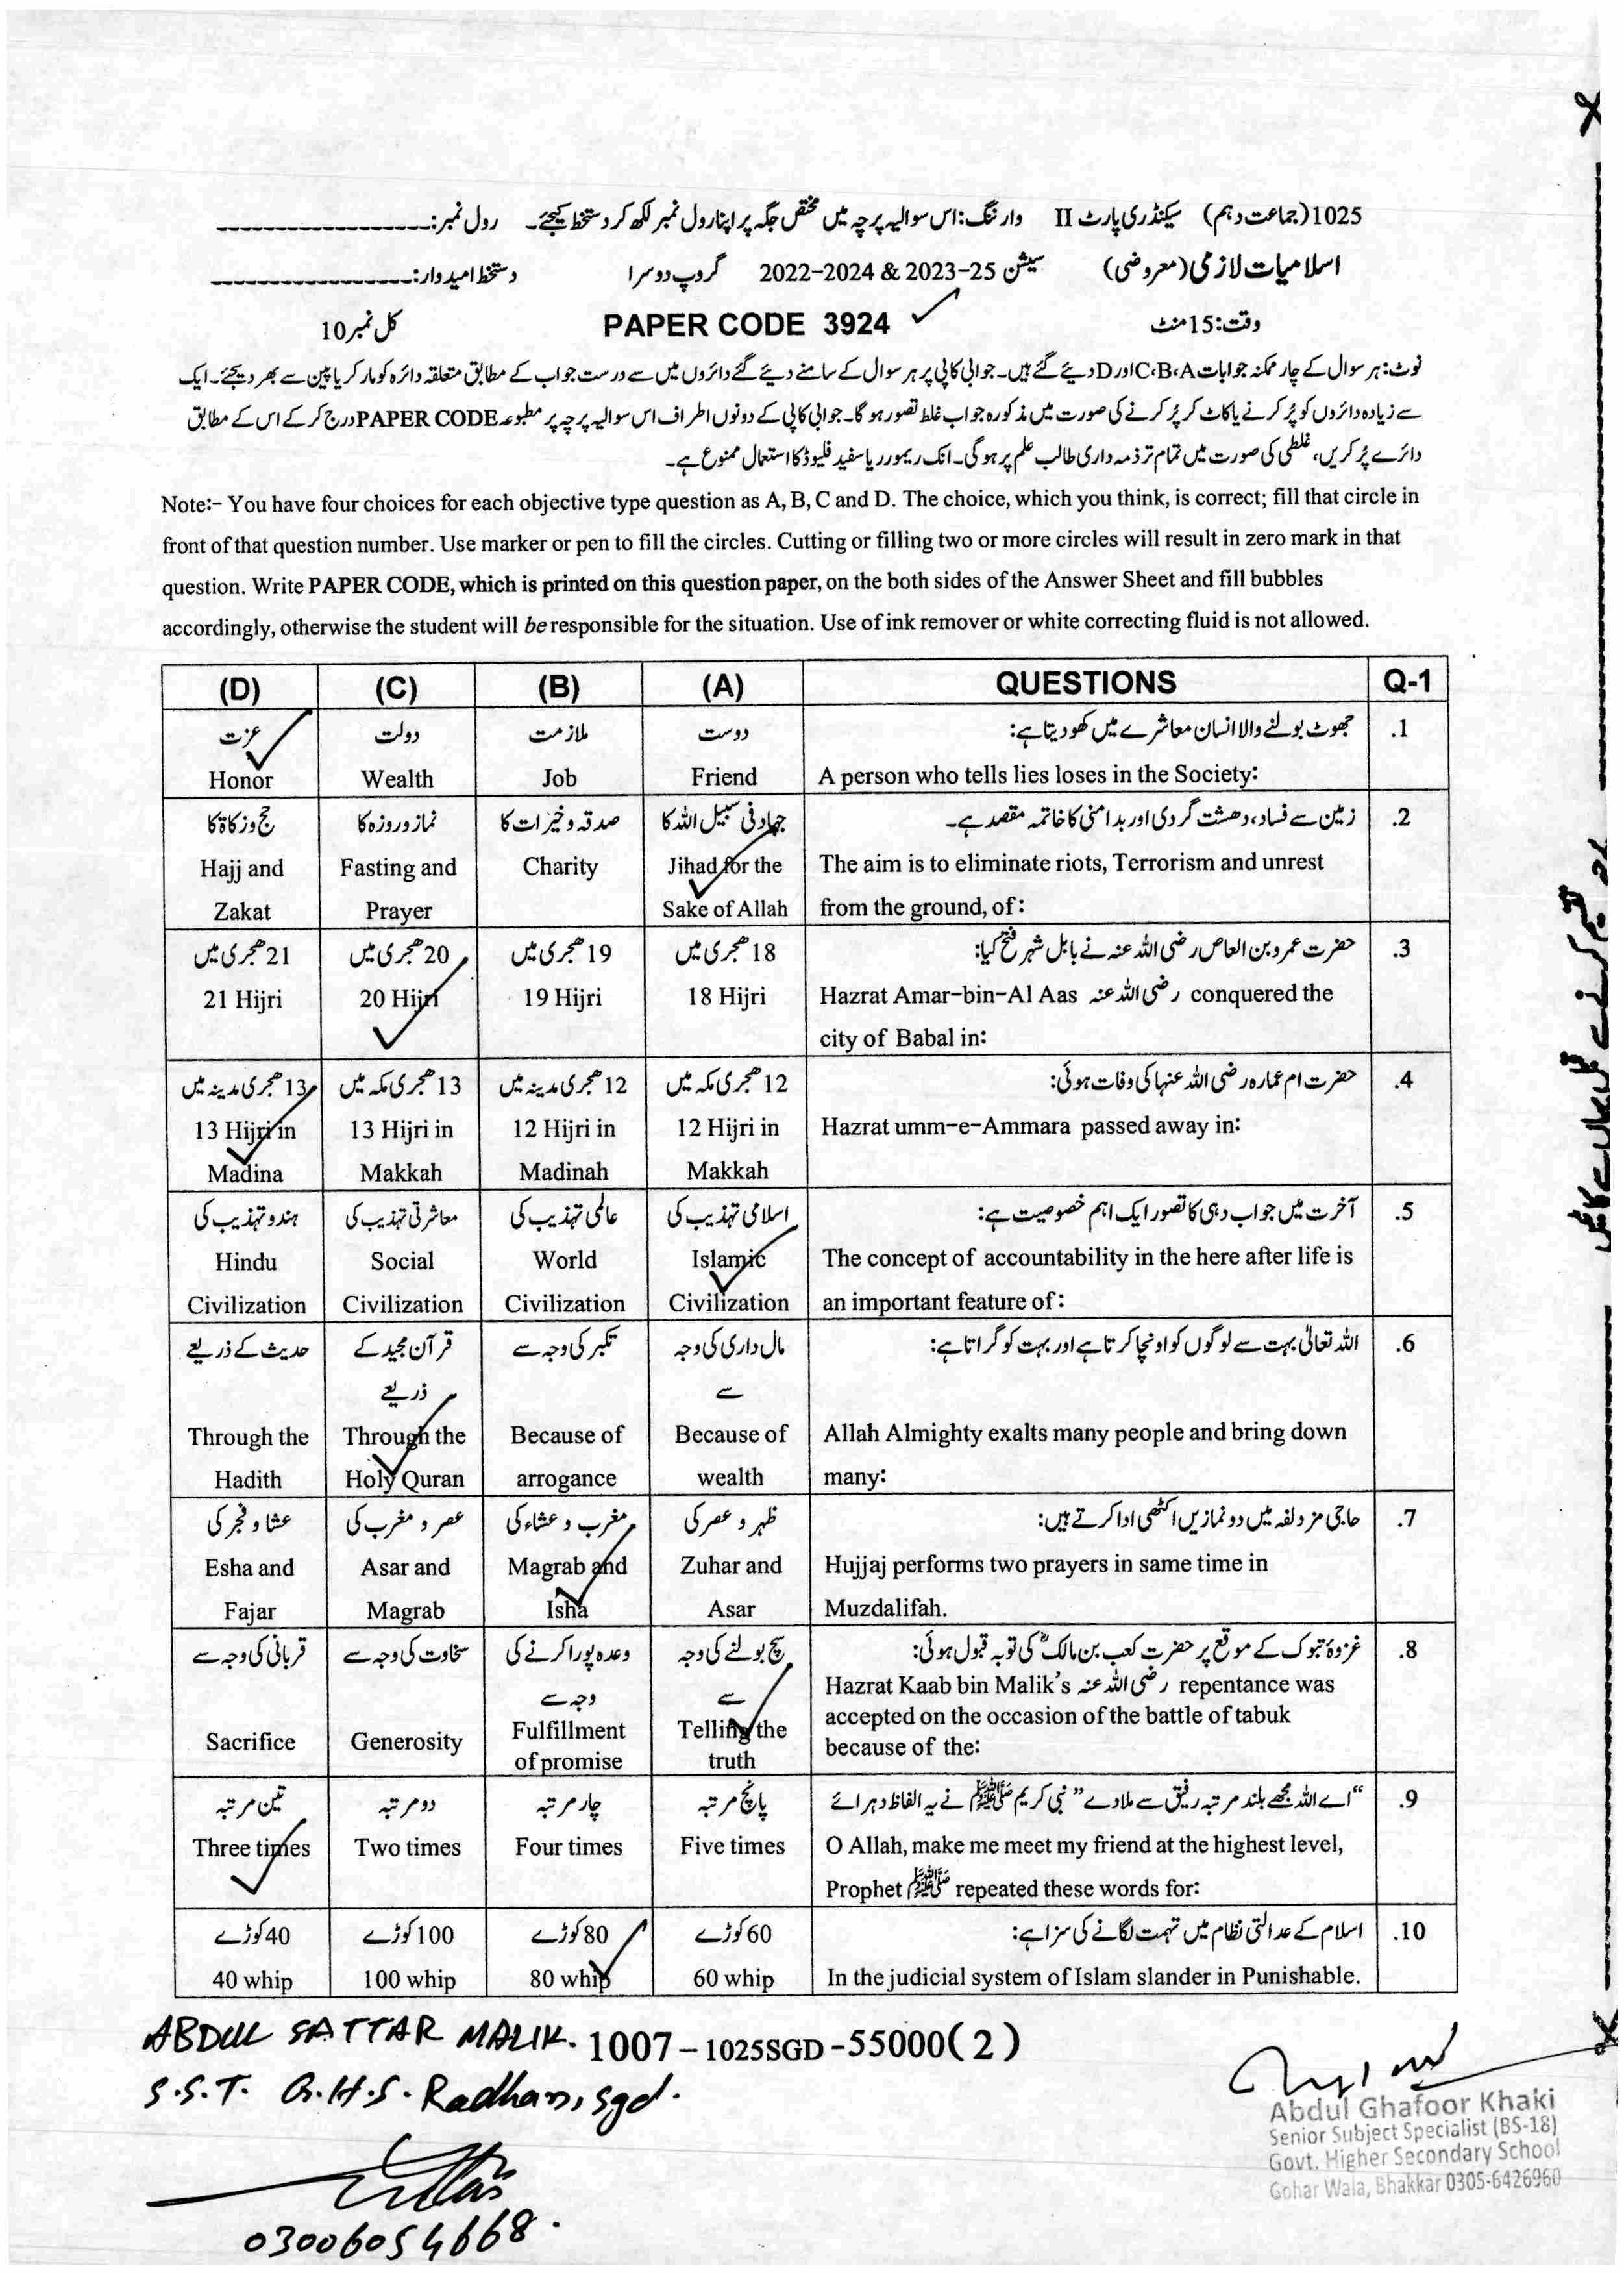 1025 (جماعت دہم) سیکنڈری پارٹ II وارننگ: اس سوالیہ پرچہ میں مختص جگہ پر اپنا رول نمبر لکھ کر دستخط کیجئے۔ رول نمبر:
اسلامیات لازمی (معروضی) سیشن 2022-2024 & 2023-25 گروپ دوسرا دستخط امیدوار:
وقت: 15 منٹ PAPER CODE 3924 کل نمبر 10
نوٹ: ہر سوال کے چار ممکنہ جوابات C،B،A اور D دیئے گئے ہیں۔ جوابی کاپی پر ہر سوال کے سامنے دیئے گئے دائروں میں سے درست جواب کے مطابق متعلقہ دائرہ کو مارکر یا پین سے بھر دیجئے۔ ایک
سے زیادہ دائروں کو پُر کرنے یا کاٹ کر پُر کرنے کی صورت میں مذکورہ جواب غلط تصور ہو گا۔ جوابی کاپی کے دونوں اطراف اس سوالیہ پرچہ پر مطبوعہ PAPER CODE درج کر کے اس کے مطابق
دائرے پُر کریں، غلطی کی صورت میں تمام تر ذمہ داری طالب علم پر ہوگی۔ انک ریمور ر یا سفید فلیوڈ کا استعمال ممنوع ہے۔
Note:- You have four choices for each objective type question as A, B, C and D. The choice, which you think, is correct; fill that circle in
front of that question number. Use marker or pen to fill the circles. Cutting or filling two or more circles will result in zero mark in that
question. Write PAPER CODE, which is printed on this question paper, on the both sides of the Answer Sheet and fill bubbles
accordingly, otherwise the student will be responsible for the situation. Use of ink remover or white correcting fluid is not allowed.
(D) (C) (B) (A) QUESTIONS Q-1
عزت دولت ملازمت دوست جھوٹ بولنے والا انسان معاشرے میں کھو دیتا ہے: .1
Honor Wealth Job Friend A person who tells lies loses in the Society:
حج و زکاۃ کا نماز و روزہ کا صدقہ و خیرات کا جہاد فی سبیل اللہ کا زمین سے فساد، دھشت گردی اور بدامنی کا خاتمہ مقصد ہے۔ .2
Hajj and Fasting and Charity Jihad for the The aim is to eliminate riots, Terrorism and unrest
Zakat Prayer Sake of Allah from the ground, of:
21 ھجری میں 20 ھجری میں 19 ھجری میں 18 ھجری میں حضرت عمرو بن العاص رضی اللہ عنہ نے بابل شہر فتح کیا: .3
21 Hijri 20 Hijri 19 Hijri 18 Hijri Hazrat Amar-bin-Al Aas رضی اللہ عنہ conquered the
city of Babal in:
13 ھجری مدینہ میں 13 ھجری مکہ میں 12 ھجری مدینہ میں 12 ھجری مکہ میں حضرت ام عمارہ رضی اللہ عنہا کی وفات ہوئی: .4
13 Hijri in 13 Hijri in 12 Hijri in 12 Hijri in Hazrat umm-e-Ammara passed away in:
Madina Makkah Madinah Makkah
ہندو تہذیب کی معاشرتی تہذیب کی عالمی تہذیب کی اسلامی تہذیب کی آخرت میں جواب دہی کا تصور ایک اہم خصوصیت ہے: .5
Hindu Social World Islamic The concept of accountability in the here after life is
Civilization Civilization Civilization Civilization an important feature of:
حدیث کے ذریعے قرآن مجید کے تکبر کی وجہ سے مال داری کی وجہ اللہ تعالیٰ بہت سے لوگوں کو اونچا کرتا ہے اور بہت کو گراتا ہے: .6
ذریعے سے
Through the Through the Because of Because of Allah Almighty exalts many people and bring down
Hadith Holy Quran arrogance wealth many:
عشا و فجر کی عصر و مغرب کی مغرب و عشاء کی ظہر و عصر کی حاجی مزدلفہ میں دو نمازیں اکٹھی ادا کرتے ہیں: .7
Esha and Asar and Magrab and Zuhar and Hujjaj performs two prayers in same time in
Fajar Magrab Isha Asar Muzdalifah.
قربانی کی وجہ سے سخاوت کی وجہ سے وعدہ پورا کرنے کی سچ بولنے کی وجہ غزوۂ تبوک کے موقع پر حضرت کعب بن مالکؓ کی توبہ قبول ہوئی: .8
وجہ سے سے Hazrat Kaab bin Malik's رضی اللہ عنہ repentance was
Sacrifice Generosity Fulfillment Telling the accepted on the occasion of the battle of tabuk
of promise truth because of the:
تین مرتبہ دو مرتبہ چار مرتبہ پانچ مرتبہ “اے اللہ مجھے بلند مرتبہ رفیق سے ملا دے” نبی کریم ﷺ نے یہ الفاظ دہرائے .9
Three times Two times Four times Five times O Allah, make me meet my friend at the highest level,
Prophet ﷺ repeated these words for:
40 کوڑے 100 کوڑے 80 کوڑے 60 کوڑے اسلام کے عدالتی نظام میں تہمت لگانے کی سزا ہے: .10
40 whip 100 whip 80 whip 60 whip In the judicial system of Islam slander in Punishable.
ABDUL SATTAR MALIK. 1007 – 1025SGD – 55000 ( 2 )
S.S.T. G.H.S. Radhan, sgd.
03006054668.
Abdul Ghafoor Khaki
Senior Subject Specialist (BS-18)
Govt. Higher Secondary School
Gohar Wala, Bhakkar 0305-6426960